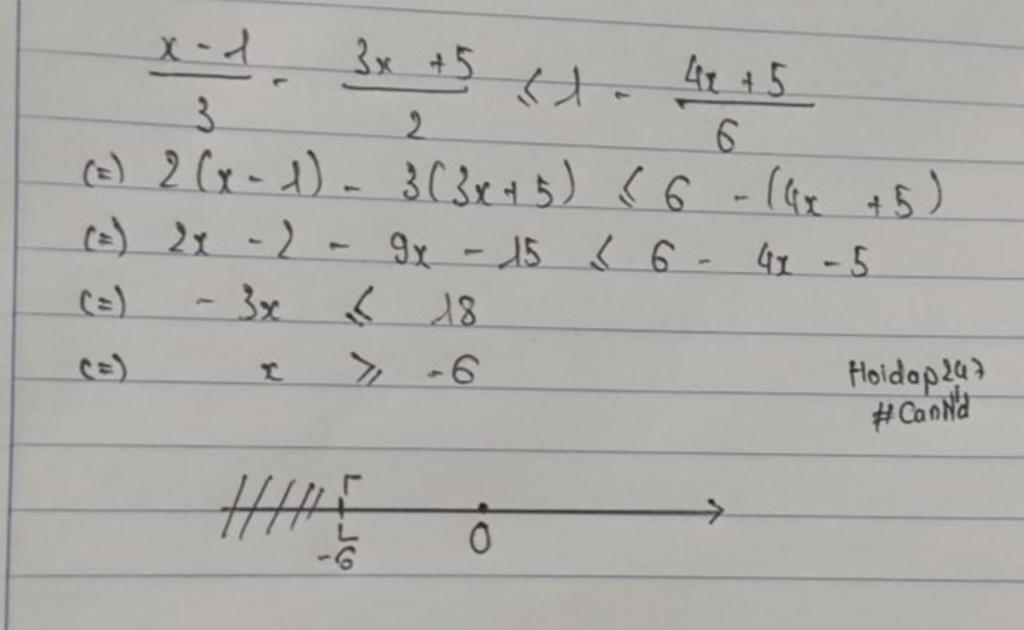 (x - 1)/3 - (3x + 5)/2 ≤ 1 - (4x + 5)/6
(=) 2(x - 1) - 3(3x + 5) ≤ 6 - (4x + 5)
(=) 2x - 2 - 9x - 15 ≤ 6 - 4x - 5
(=) - 3x ≤ 18
(=) x ≥ -6
Hoidap247
#CanNd
-6 0